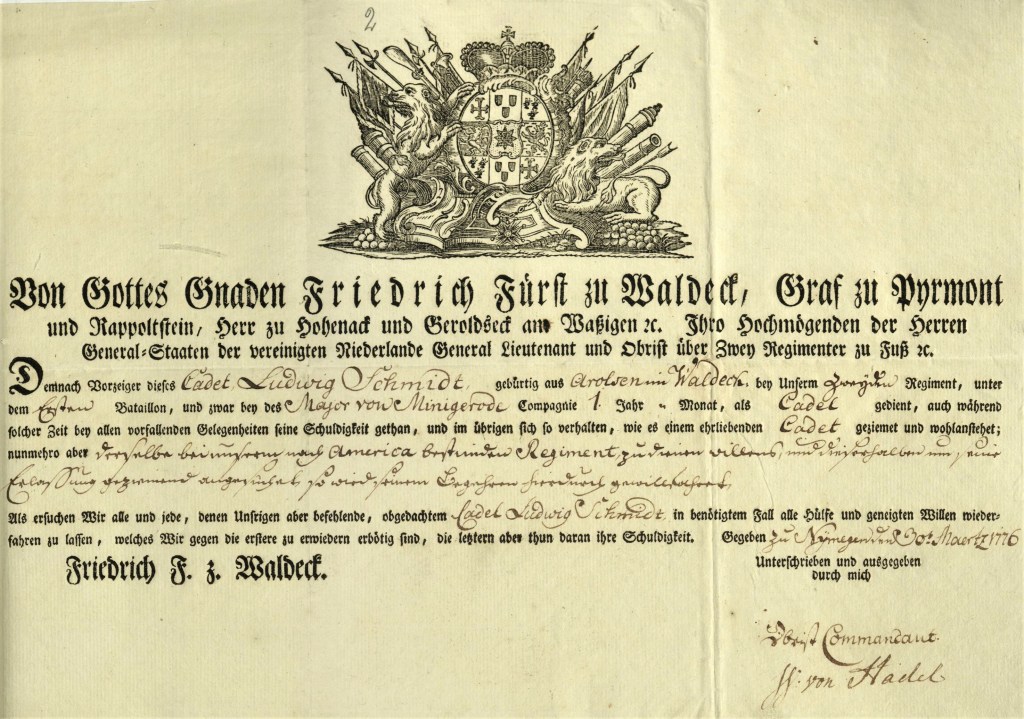 2
Von Gottes Gnaden Friedrich Fürst zu Waldeck, Graf zu Pyrmont
und Rappoltstein, Herr zu Hohenack und Geroldseck am Waßigen ꝛc. Ihro Hochmögenden der Herren
General-Staaten der vereinigten Niederlande General Lieutenant und Obrist über Zwey Regimenter zu Fuß ꝛc.
Demnach Vorzeiger dieses Cadet Ludwig Schmidt, gebürtig aus Arolsen im Waldeck, bey Unserm Zweyden Regiment, unter
dem Ersten Bataillon, und zwar bey des Major von Minigerode Compagnie 1 Jahr " Monat, als Cadet gedient, auch während
solcher Zeit bey allen vorfallenden Gelegenheiten seine Schuldigkeit gethan, und im übrigen sich so verhalten, wie es einem ehrliebenden Cadet geziemet und wohlanstehet;
nunmehro aber derselbe bei unserm nach America bestimden Regiment, zu dienen willens, und dieserhalben um seine
Erlassung geziemend angesuchet, so wird seinem Begehren hierdurch gewillfahret,
Als ersuchen Wir alle und jede, denen Unsrigen aber befehlende, obgedachtem Cadet Ludwig Schmidt, in benötigtem Fall alle Hülfe und geneigten Willen wieder-
fahren zu lassen, welches Wir gegen die erstere zu erwiedern erbötig sind, die letztern aber thun daran ihre Schuldigkeit. Gegeben zu Nymegen den 30t Maertz 1776
Friedrich F. z. Waldeck.
Unterschrieben und ausgegeben
durch mich
Obrist Commandant.
von Hadel